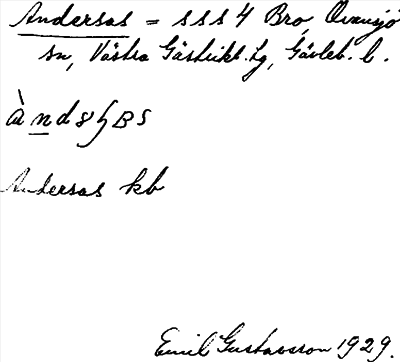 Andersas = s s s 4 Bro, Ovansjö
sn, Västra Gästrikl. tg, Gävleb. l.
Andersas kb
Emil Gustavsson 1929.